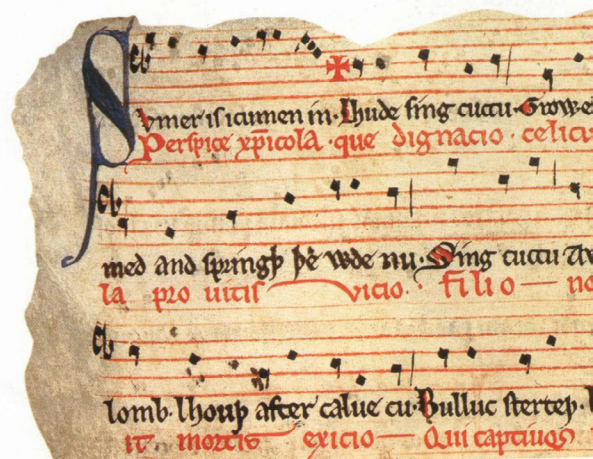 Svmer is icumen in. Lhude sing cuccu. Growe
Perspice xp̄icola. que dignacio. celicu
med and springþ þe wde nu. Sing cuccu Aw
la pro uitis vicio. filio no
lomb. lhouþ after calue cu. Bulluc sterteþ.
it mortis exicio Qui captiuos